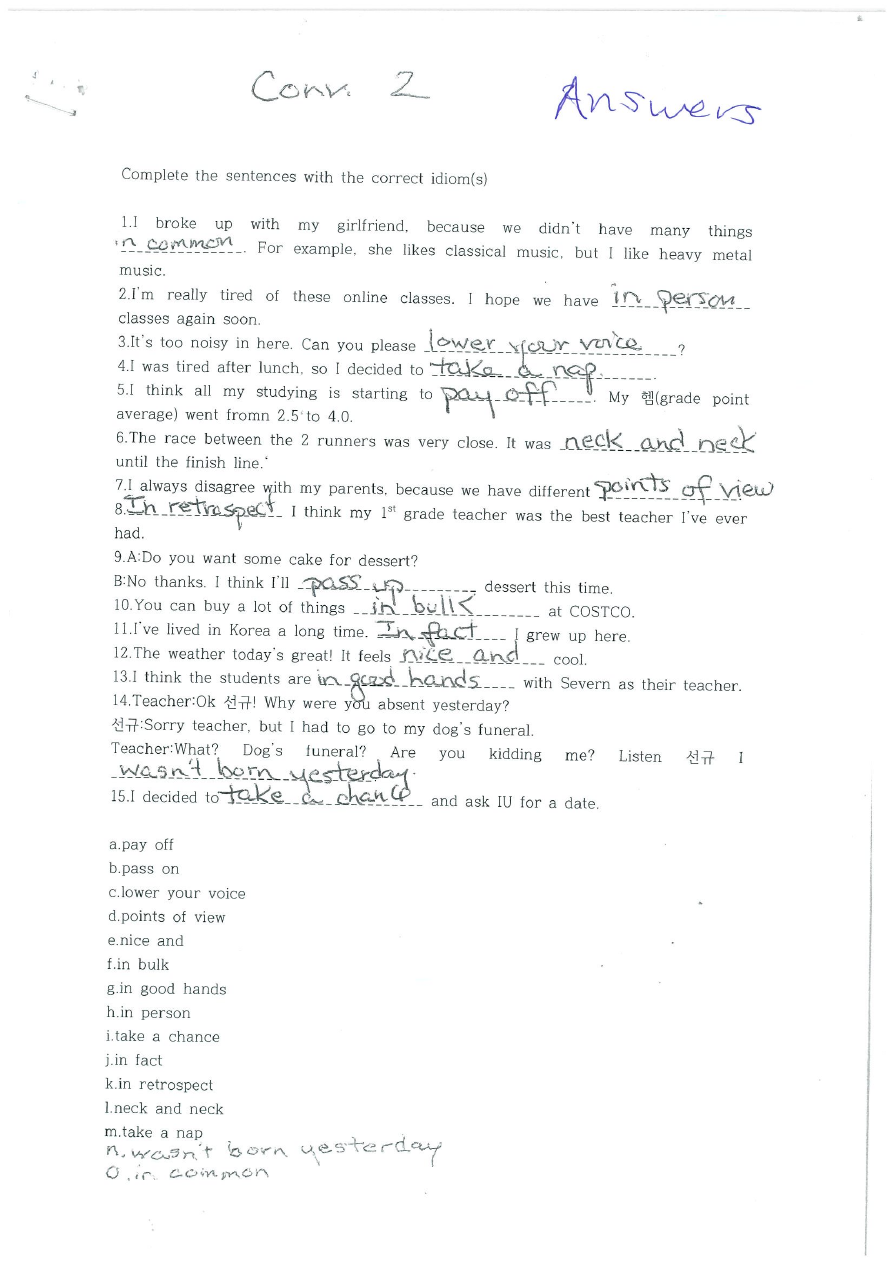 Conv. 2
Answers
Complete the sentences with the correct idiom(s)
1.I broke up with my girlfriend, because we didn't have many things
in common. For example, she likes classical music, but I like heavy metal
music.
2.I'm really tired of these online classes. I hope we have in person
classes again soon.
3.It's too noisy in here. Can you please lower your voice?
4.I was tired after lunch, so I decided to take a nap.
5.I think all my studying is starting to pay off. My 헴(grade point
average) went fromn 2.5 to 4.0.
6.The race between the 2 runners was very close. It was neck and neck
until the finish line.
7.I always disagree with my parents, because we have different points of view
8.In retrospect I think my 1st grade teacher was the best teacher I've ever
had.
9.A:Do you want some cake for dessert?
B:No thanks. I think I'll pass up dessert this time.
10.You can buy a lot of things in bulk at COSTCO.
11.I've lived in Korea a long time. In fact I grew up here.
12.The weather today's great! It feels nice and cool.
13.I think the students are in good hands with Severn as their teacher.
14.Teacher:Ok 선규! Why were you absent yesterday?
선규:Sorry teacher, but I had to go to my dog's funeral.
Teacher:What? Dog's funeral? Are you kidding me? Listen 선규 I
wasn't born yesterday.
15.I decided to take a chance and ask IU for a date.
a.pay off
b.pass on
c.lower your voice
d.points of view
e.nice and
f.in bulk
g.in good hands
h.in person
i.take a chance
j.in fact
k.in retrospect
l.neck and neck
m.take a nap
n.wasn't born yesterday
o.in common